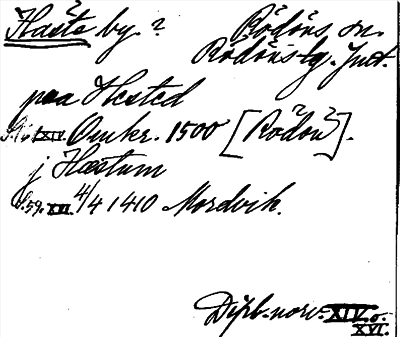 Håste by. 2 Rödöns sn.
Rödöns tg. Jmtl.
paa Hested
XIV. Omkr. 1500 [Rödön].
j Hæstum
S. 59. XVI. 4/4 1410 Mordvik.
Dipl. norv. XIV o.
XVI.